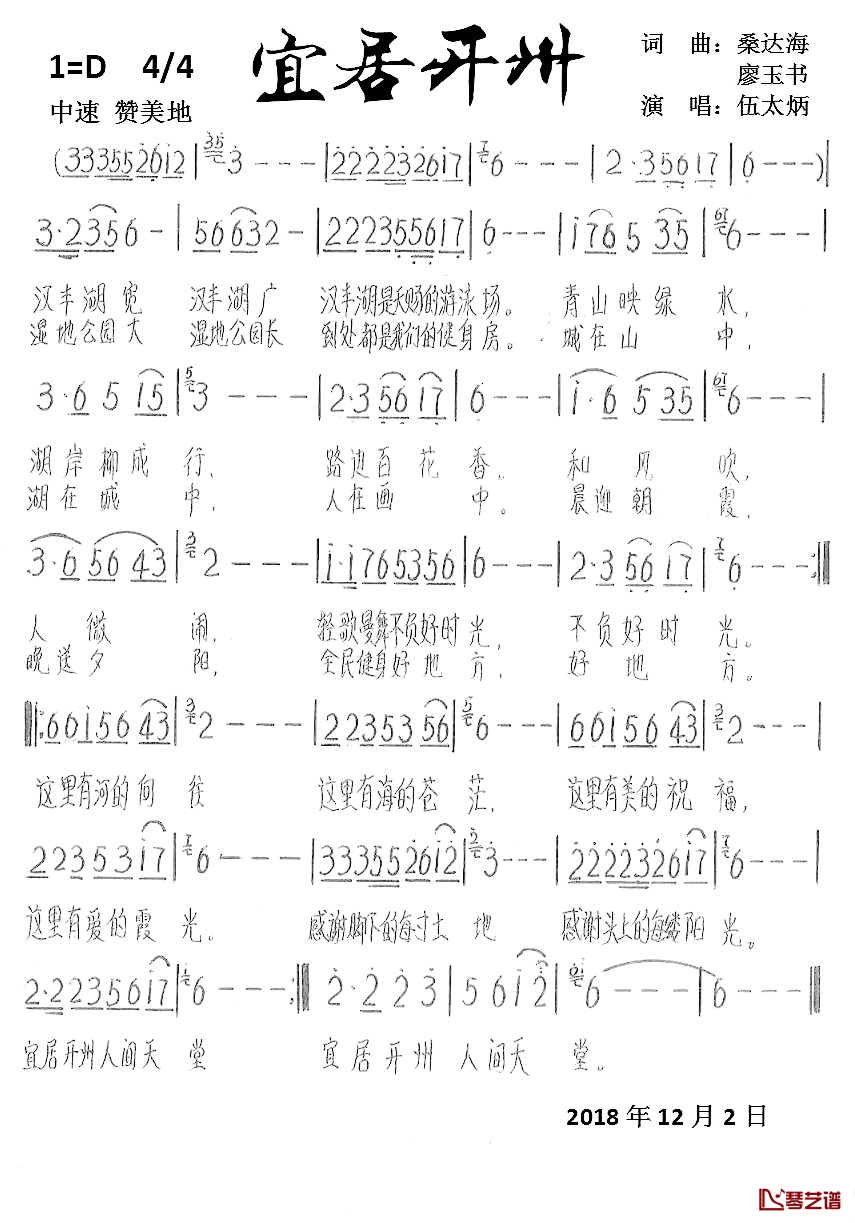 宜居开州
1=D 4/4
中速 赞美地
词 曲：桑达海
廖玉书
演 唱：伍太炳
(333552612 | 3 - - - | 222232617 | 6 - - - | 2·35617 | 6 - - -)|
3·2356 - | 566332 - | 22235561 7 | 6 - - - | i765 35 | 6 - - - |
汉丰湖宽 汉丰湖广 汉丰湖是天赐的游泳场。青山映绿水，
湿地公园大 湿地公园长 到处都是我们的健身房。城在山中，
3·6 5 15 | 3 - - - | 2·3 56 17 | 6 - - - | i·6 5 35 | 6 - - - |
湖岸柳成行、 路边百花香。 和风吹，
湖在城中， 人在画中。晨迎朝霞，
3·6 56 43 | 2 - - - | i·i765356 | 6 - - - | 2·3 56 17 | 6 - - - :||
人微闹， 轻歌曼舞不负好时光，不负好时光。
晚送夕阳， 全民健身好地方，好地方。
||: 66i56 43 | 2 - - - | 22353 56 | 6 - - - | 66i56 43 | 2 - - - |
这里有河的向往 这里有海的苍茫， 这里有美的祝福，
22353 i7 | 6 - - - | 3335526i2 | 3 - - - | 2222326i7 | 6 - - - |
这里有爱的霞光。 感谢脚下的每寸土地 感谢头上的每缕阳光。
2·2235617 | 6 - - - :|| 2·2 2 3 | 5 6 i2 | 6 - - - | 6 - - - ||
宜居开州人间天堂 宜居开州人间天堂。
2018年12月2日
琴艺谱